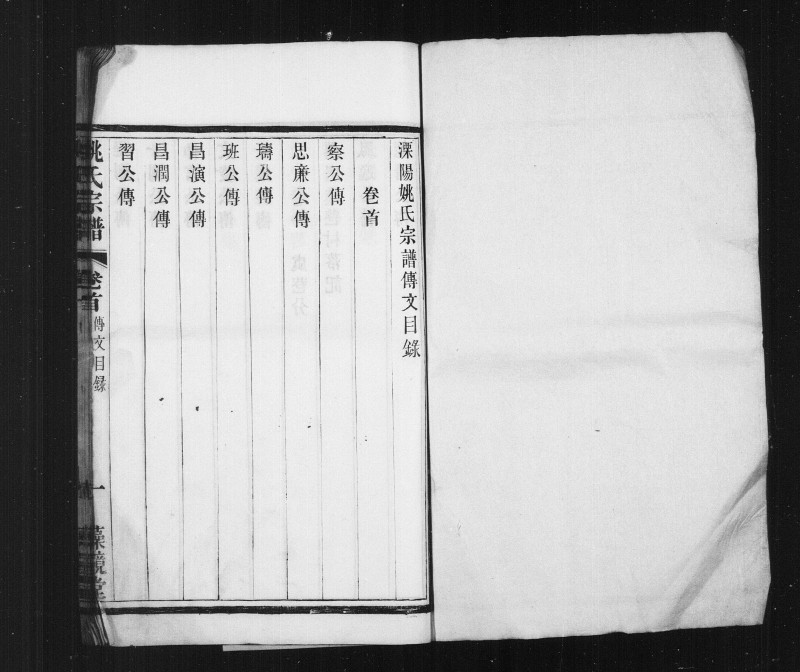 溧陽姚氏宗譜傳文目錄
卷首
察公傳
思亷公傳
璹公傳
班公傳
昌演公傳
昌潤公傳
習公傳
姚氏宗譜
卷首
傳文目錄
一